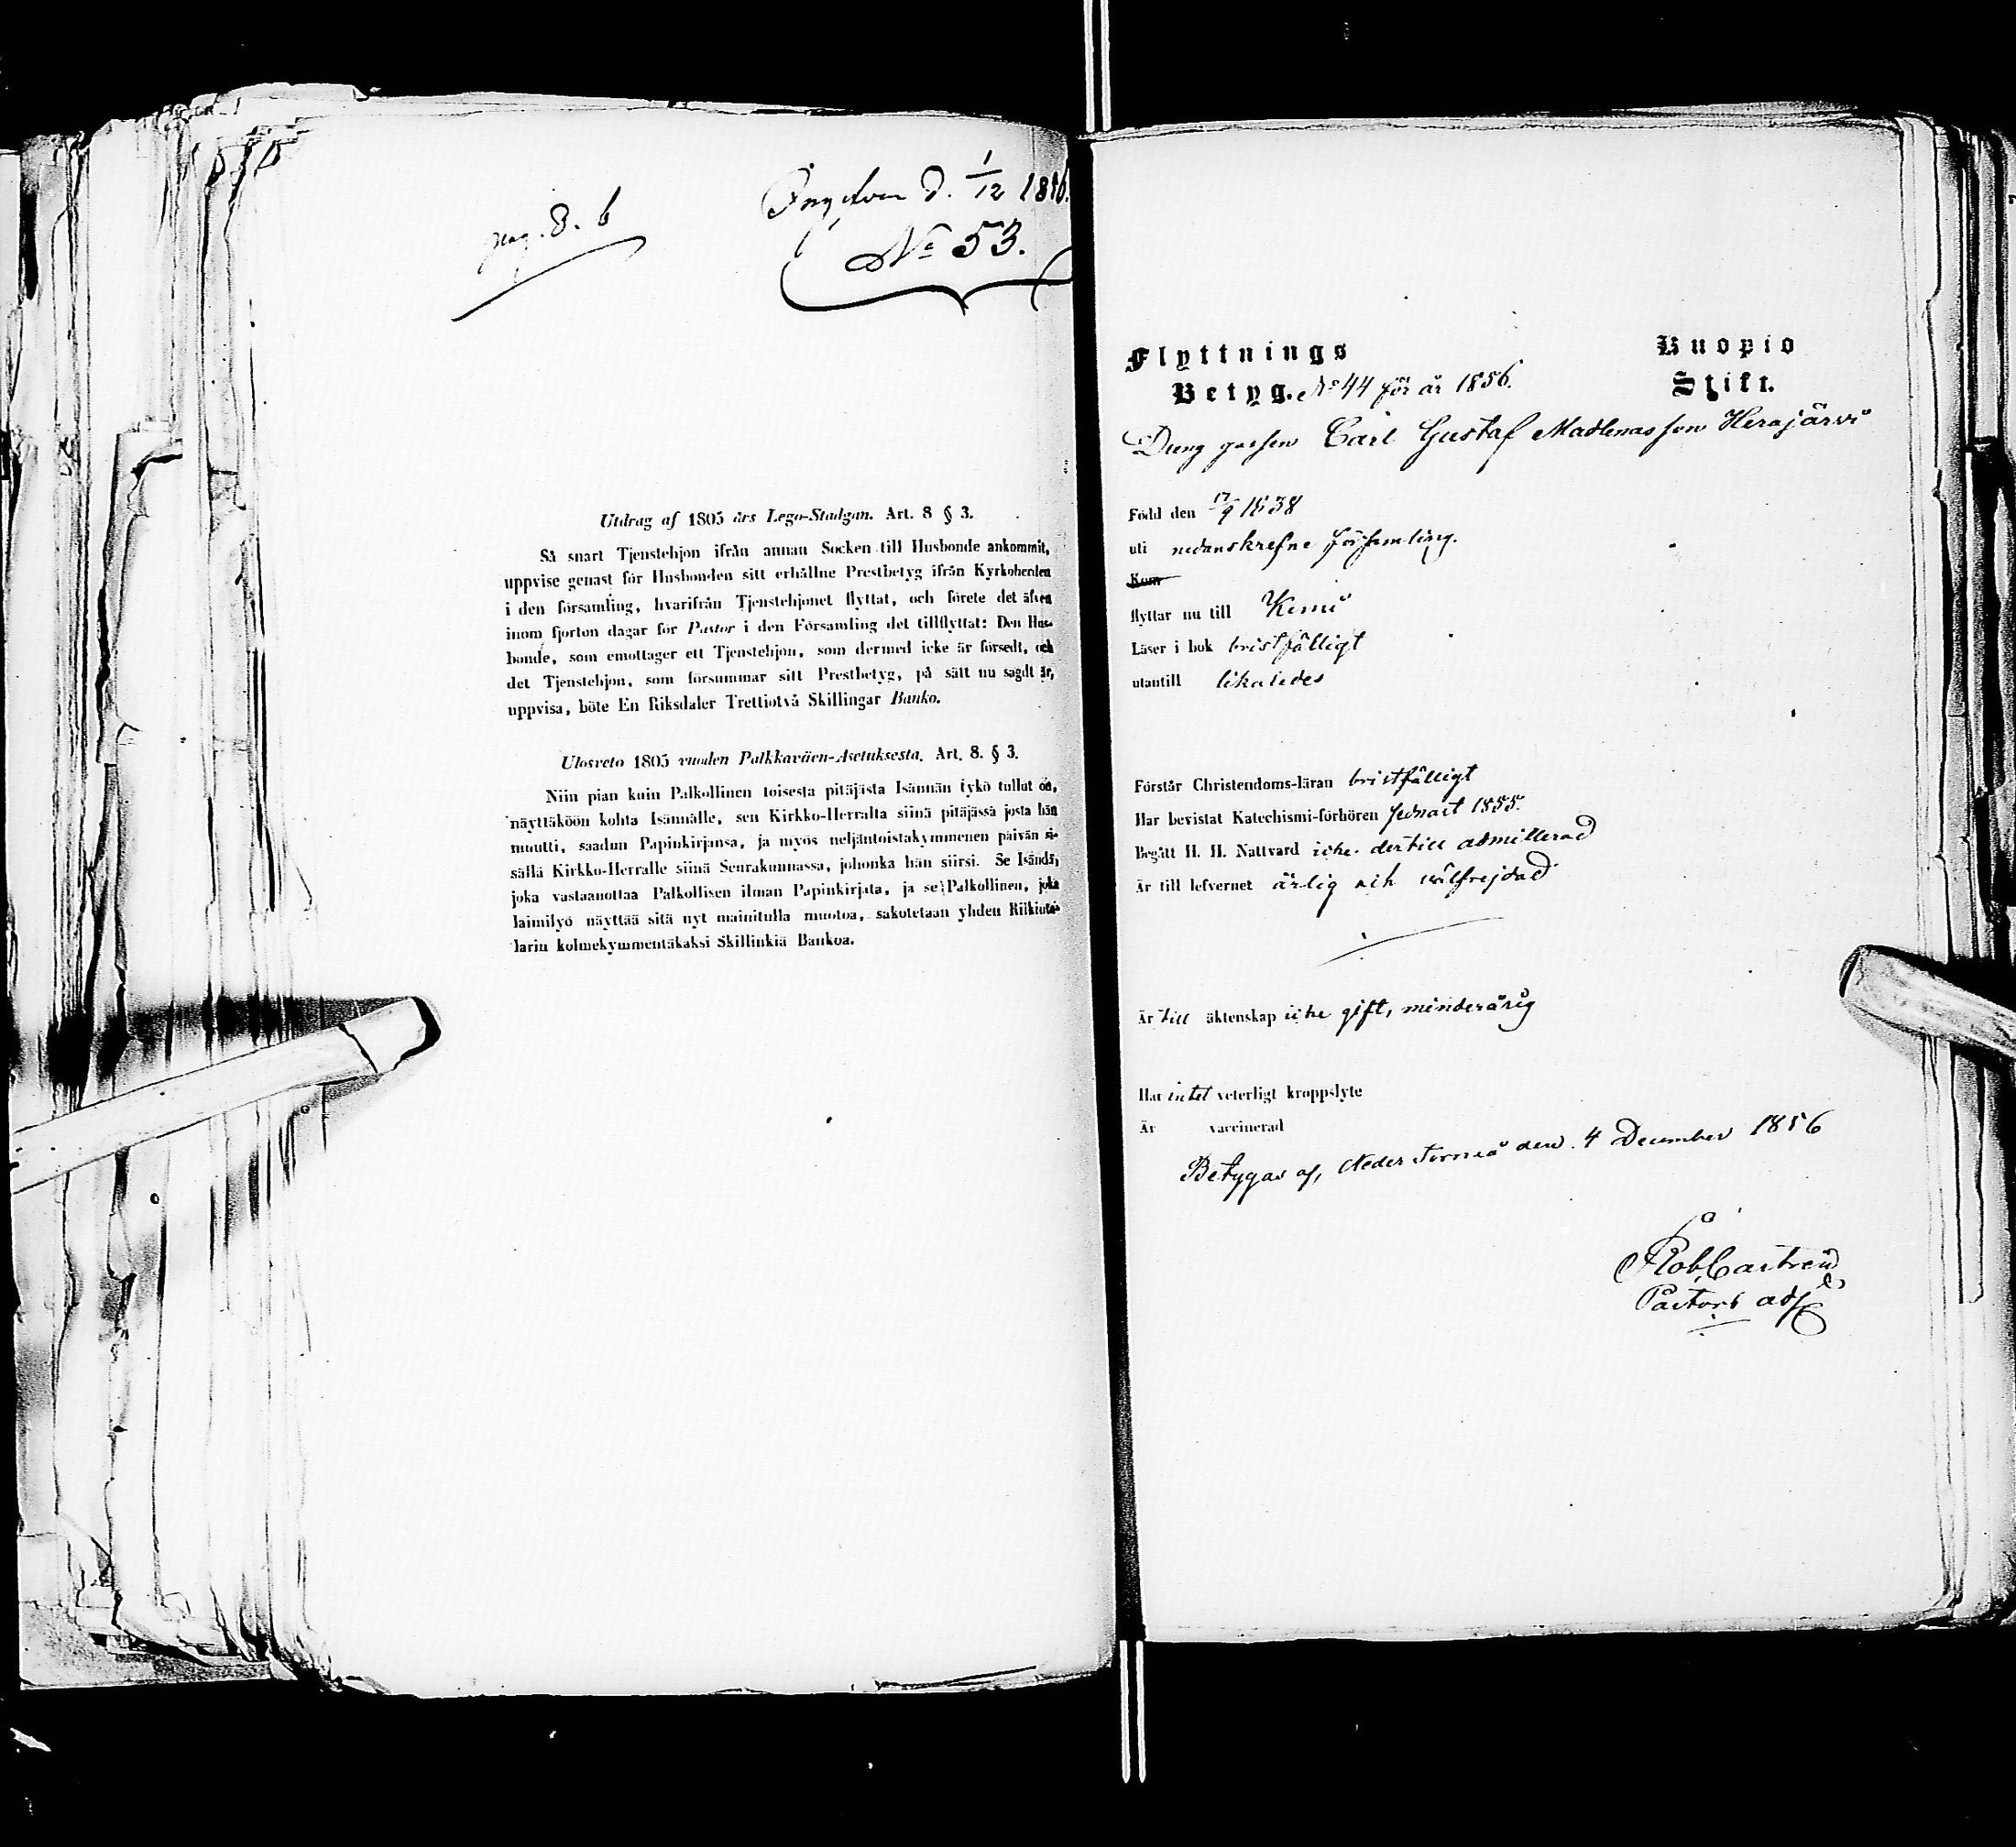 pag. 8. b
d. 1/12 1856.
No 53.
Utdrag af 1805 års Lego-Stadgan. Art. 8 § 3.
Så snart Tjenstehjon ifrån annan Socken till Husbonde ankommit,
uppvise genast för Husbonden sitt erhållne Prestbetyg ifrån Kyrkoherden
i den församling, hvarifrån Tjenstehjonet flyttat, och förete det äfven
inom fjorton dagar för Pastor i den Församling det tillflyttat: Den Hus-
bonde, som emottager ett Tjenstehjon, som dermed icke är försedt, och
det Tjenstehjon, som försummar sitt Prestbetyg, på sätt nu sagdt är,
uppvisa, böte En Riksdaler Trettiotvå Skillingar Banko.
Ulosveto 1805 vuoden Palkkaväen-Asetuksesta. Art. 8. § 3.
Niin pian kuin Palkollinen toisesta pitäjästa Isännän tykö tullut on,
näyttäköön kohta Isännälle, sen Kirkko-Herralta siinä pitäjässä josta hän
muutti, saadun Papinkirjansa, ja myös neljäntoistakymmenen päivän si-
sällä Kirkko-Herralle siinä Seurakunnassa, johonka hän siirsi. Se Isändä,
joka vastaanottaa Palkollisen ilman Papinkirjata, ja se Palkollinen, joka
laimilyö näyttää sitä nyt mainitulla muotoa, sakotetaan yhden Riikinta-
larin kolmekymmentäkaksi Skillinkiä Bankoa.
Flyttnings
Betyg. No 44 för år 1856.
Kuopio
Stift.
Dreng gossen Carl Gustaf Madlenasson Herajärvi
Född den 17/9 1838
uti nedanskrefne församling.
Kom
flyttar nu till Kemi
Läser i bok bristfälligt
utantill likaledes
Förstår Christendoms-läran bristfälligt
Har bevistat Katechismi-förhören sednast 1855.
Begått H. H. Nattvard icke dertill admitterad
Är till lefvernet ärlig och wälfrejdad
Är till äktenskap icke gift, minderårig
Har intet veterligt kroppslyte
Är vaccinerad
Betygas af, Neder Torneå den 4 December 1856
Rob. Castrén
Pastors adj.